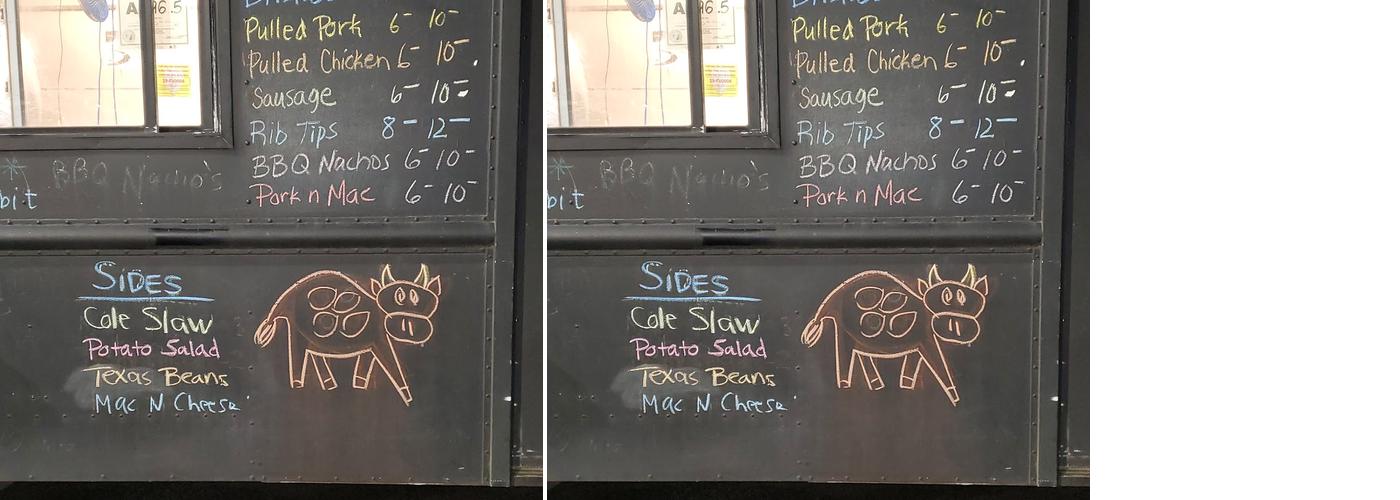 A 96.5
Pulled Pork 6- 10-
Pulled Chicken 6- 10-
Sausage 6- 10-
Rib Tips 8- 12-
BBQ Nachos 6- 10-
Pork n Mac 6- 10-
BBQ Nacho's
bit
SiDES
Cole Slaw
Potato Salad
Texas Beans
Mac N Cheese
96.5
Pulled Pork 6- 10-
Pulled Chicken 6- 10-
Sausage 6- 10-
Rib Tips 8- 12-
BBQ Nachos 6- 10-
Pork n Mac 6- 10-
BBQ Nacho's
bit
SiDES
Cole Slaw
Potato Salad
Texas Beans
Mac N Cheese